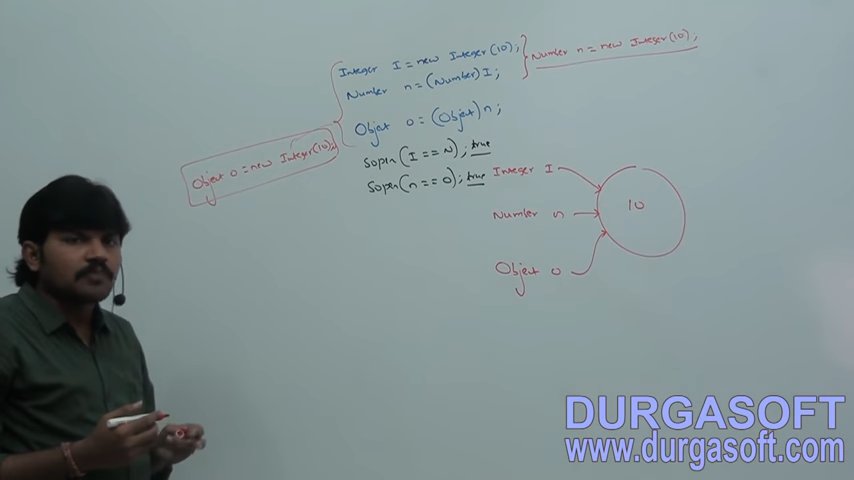 Integer I = new Integer(10);
Number n = (Number)I;
Number n = new Integer(10);
Object o = (Object)n;
Object o = new Integer(10);
sopln(I == n); true
sopln(n == o); true
Integer I
Number n
Object o
10
DURGASOFT
www.durgasoft.com